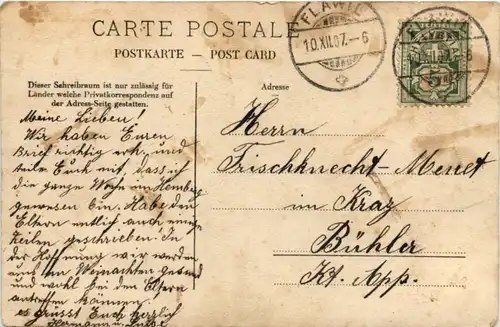 CARTE POSTALE
POSTKARTE — POST CARD
FLAWIL
10.XII.07.–6
Dieser Schreibraum ist nur zulässig für
Länder welche Privatkorrespondenz auf
der Adress-Seite gestatten.
Adresse
Meine Lieben!
Wir haben Euren
Brief richtig erh. und
teile Euch mit, dass ich
die ganze Woche im
gewesen bin. Habe den
Eltern auch
Zeilen geschrieben. In
der Hoffnung wir werden
uns an Weinachten gesund
und wohl bei den Eltern
antreffen können.
es grüsst Euch herzlich
Hermann u.
Herrn
Frischknecht-Menet
im Kraz
Bühler
Kt. App.